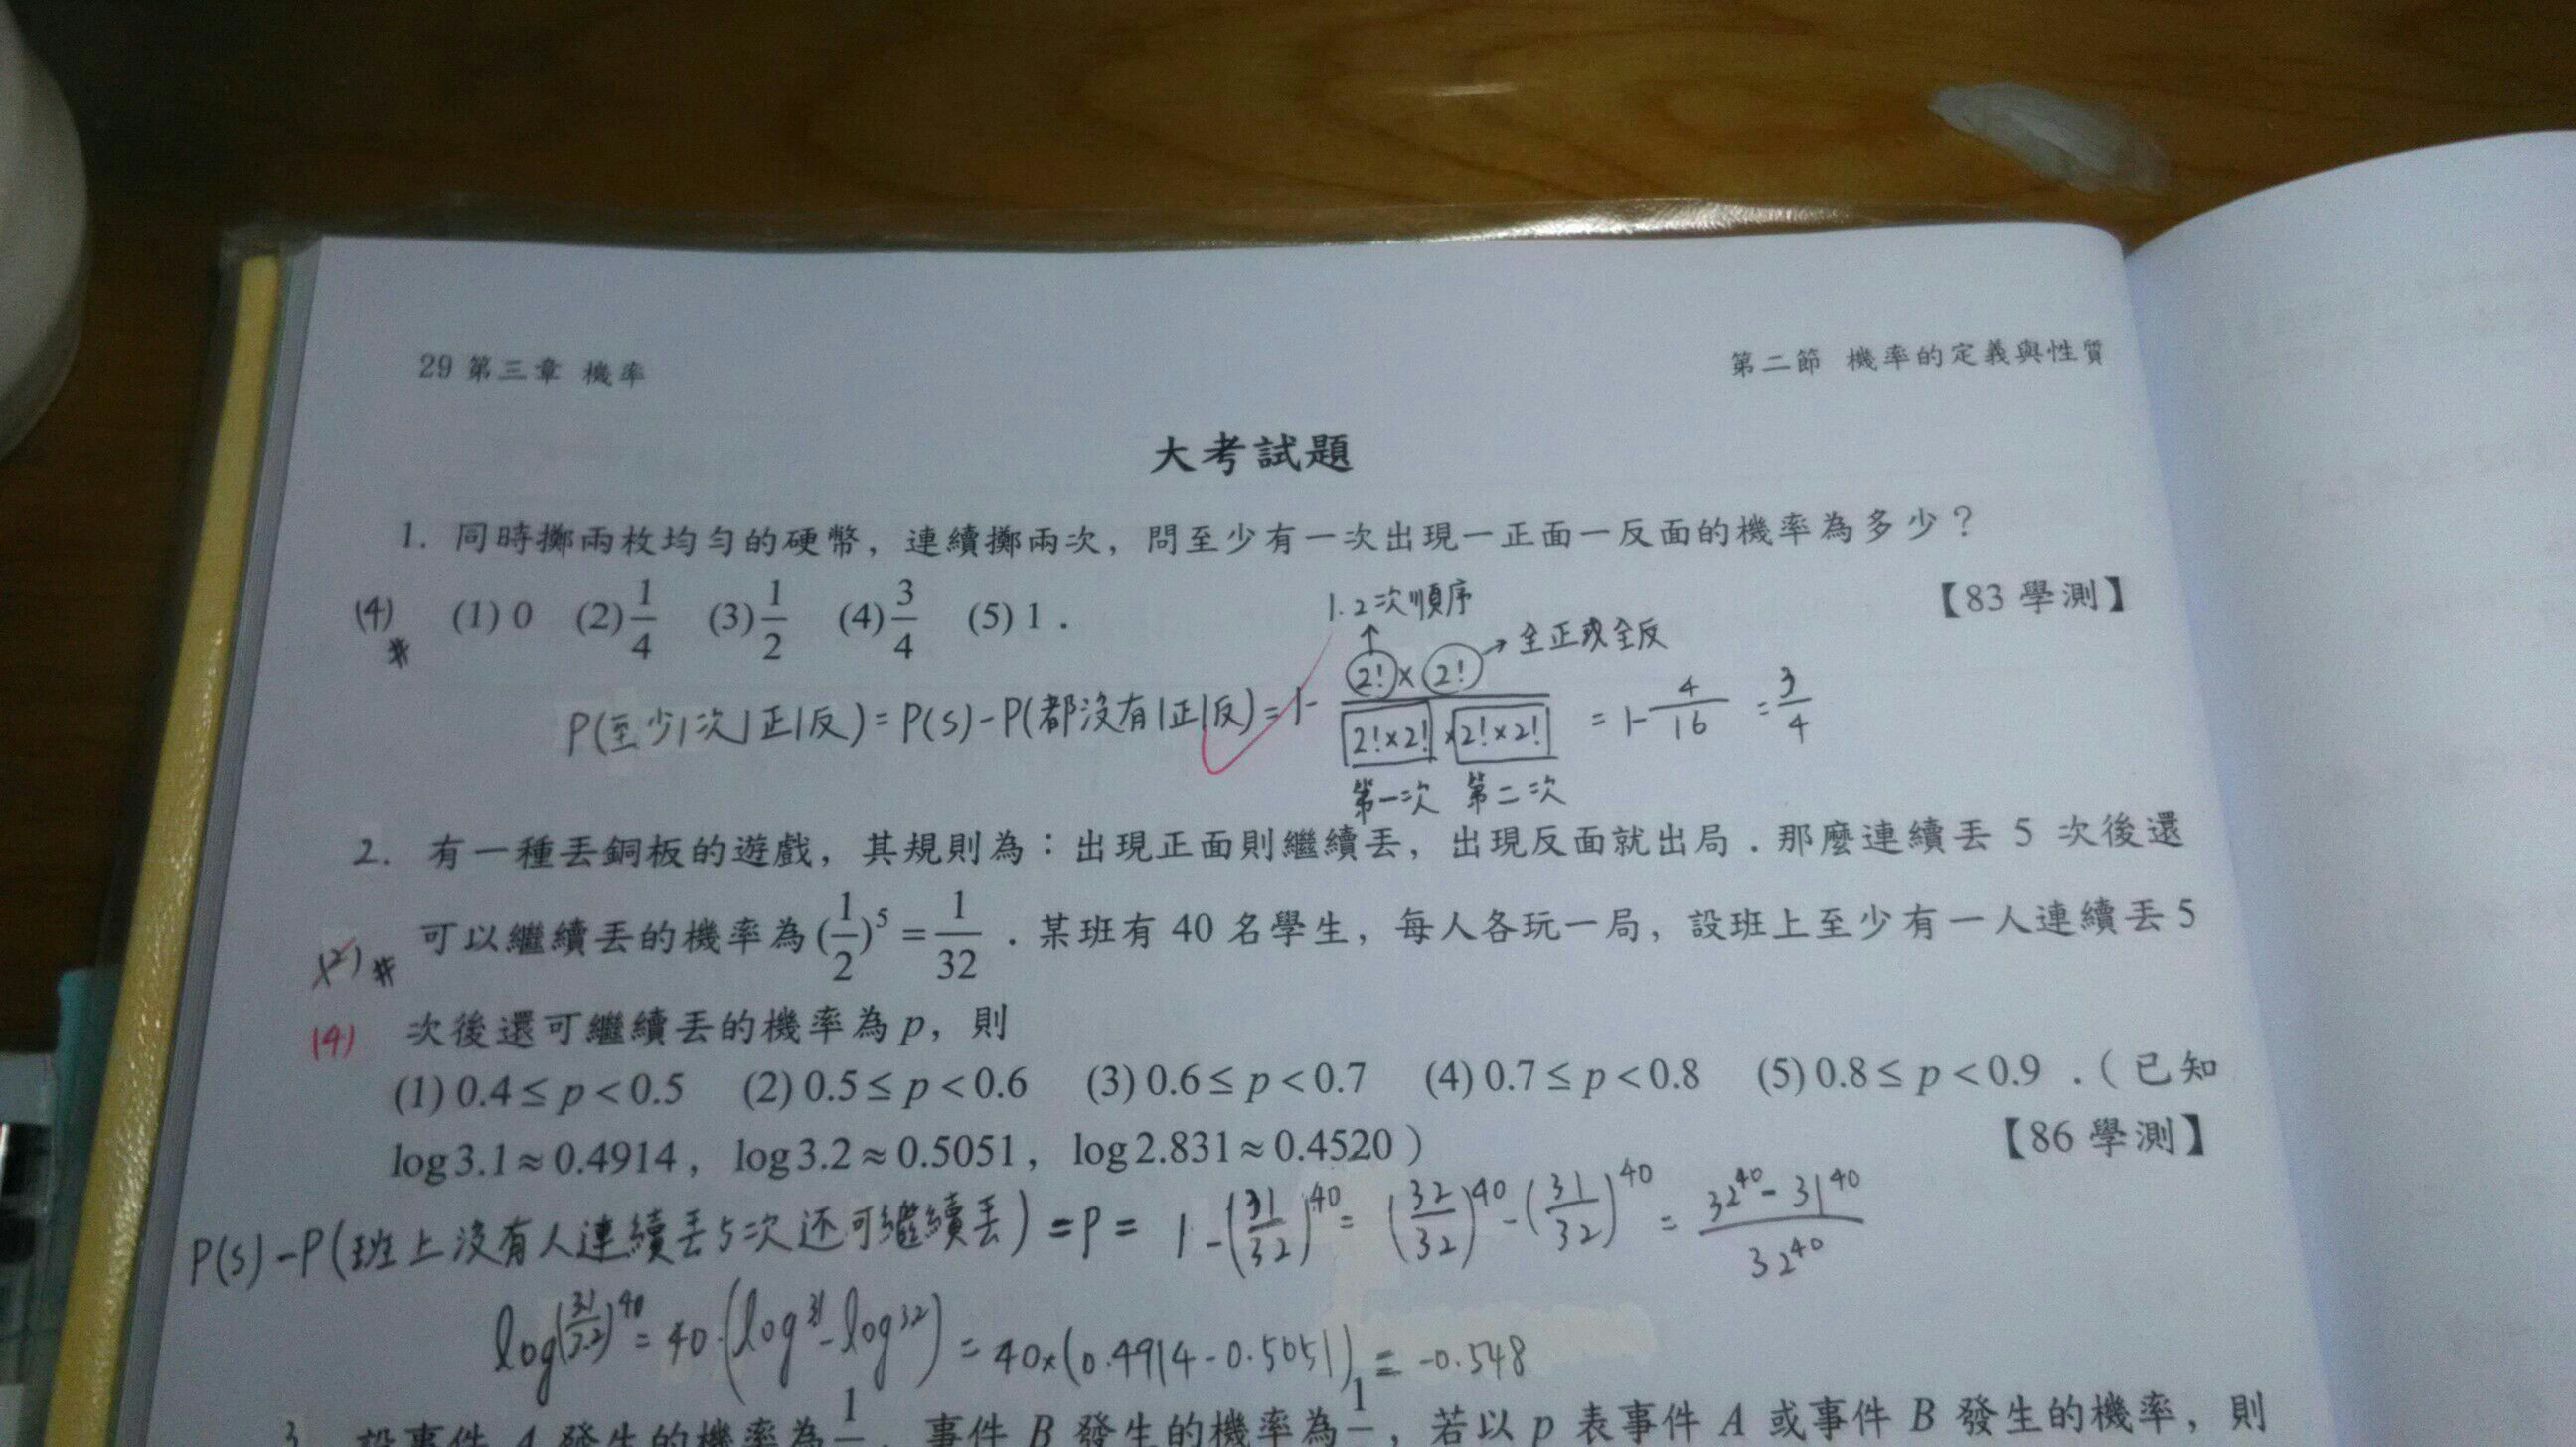 29 第三章 機率
第二節 機率的定義與性質
大考試題
1. 同時擲兩枚均勻的硬幣，連續擲兩次，問至少有一次出現一正面一反面的機率為多少？
(4)# (1) 0 (2) 1/4 (3) 1/2 (4) 3/4 (5) 1．
【83 學測】
1.2次順序
全正或全反
P(至少1次1正1反) = P(S) - P(都沒有1正1反) = 1 - (2! × 2!)/(2!×2! × 2!×2!) = 1 - 4/16 = 3/4
第一次 第二次
2. 有一種丟銅板的遊戲，其規則為：出現正面則繼續丟，出現反面就出局．那麼連續丟 5 次後還
(2)# 可以繼續丟的機率為 (1/2)^5 = 1/32．某班有 40 名學生，每人各玩一局，設班上至少有一人連續丟 5
(4) 次後還可繼續丟的機率為 p，則
(1) 0.4 ≤ p < 0.5 (2) 0.5 ≤ p < 0.6 (3) 0.6 ≤ p < 0.7 (4) 0.7 ≤ p < 0.8 (5) 0.8 ≤ p < 0.9．(已知
log 3.1 ≈ 0.4914，log 3.2 ≈ 0.5051，log 2.831 ≈ 0.4520)
【86 學測】
P(S) - P(班上沒有人連續丟5次还可繼續丟) = P = 1 - (31/32)^40 = (32/32)^40 - (31/32)^40 = (32^40 - 31^40)/32^40
log(31/32)^40 = 40·(log31 - log32) = 40×(0.4914 - 0.5051) = -0.548
3. 設事件 A 發生的機率為 1，事件 B 發生的機率為 1，若以 p 表事件 A 或事件 B 發生的機率，則